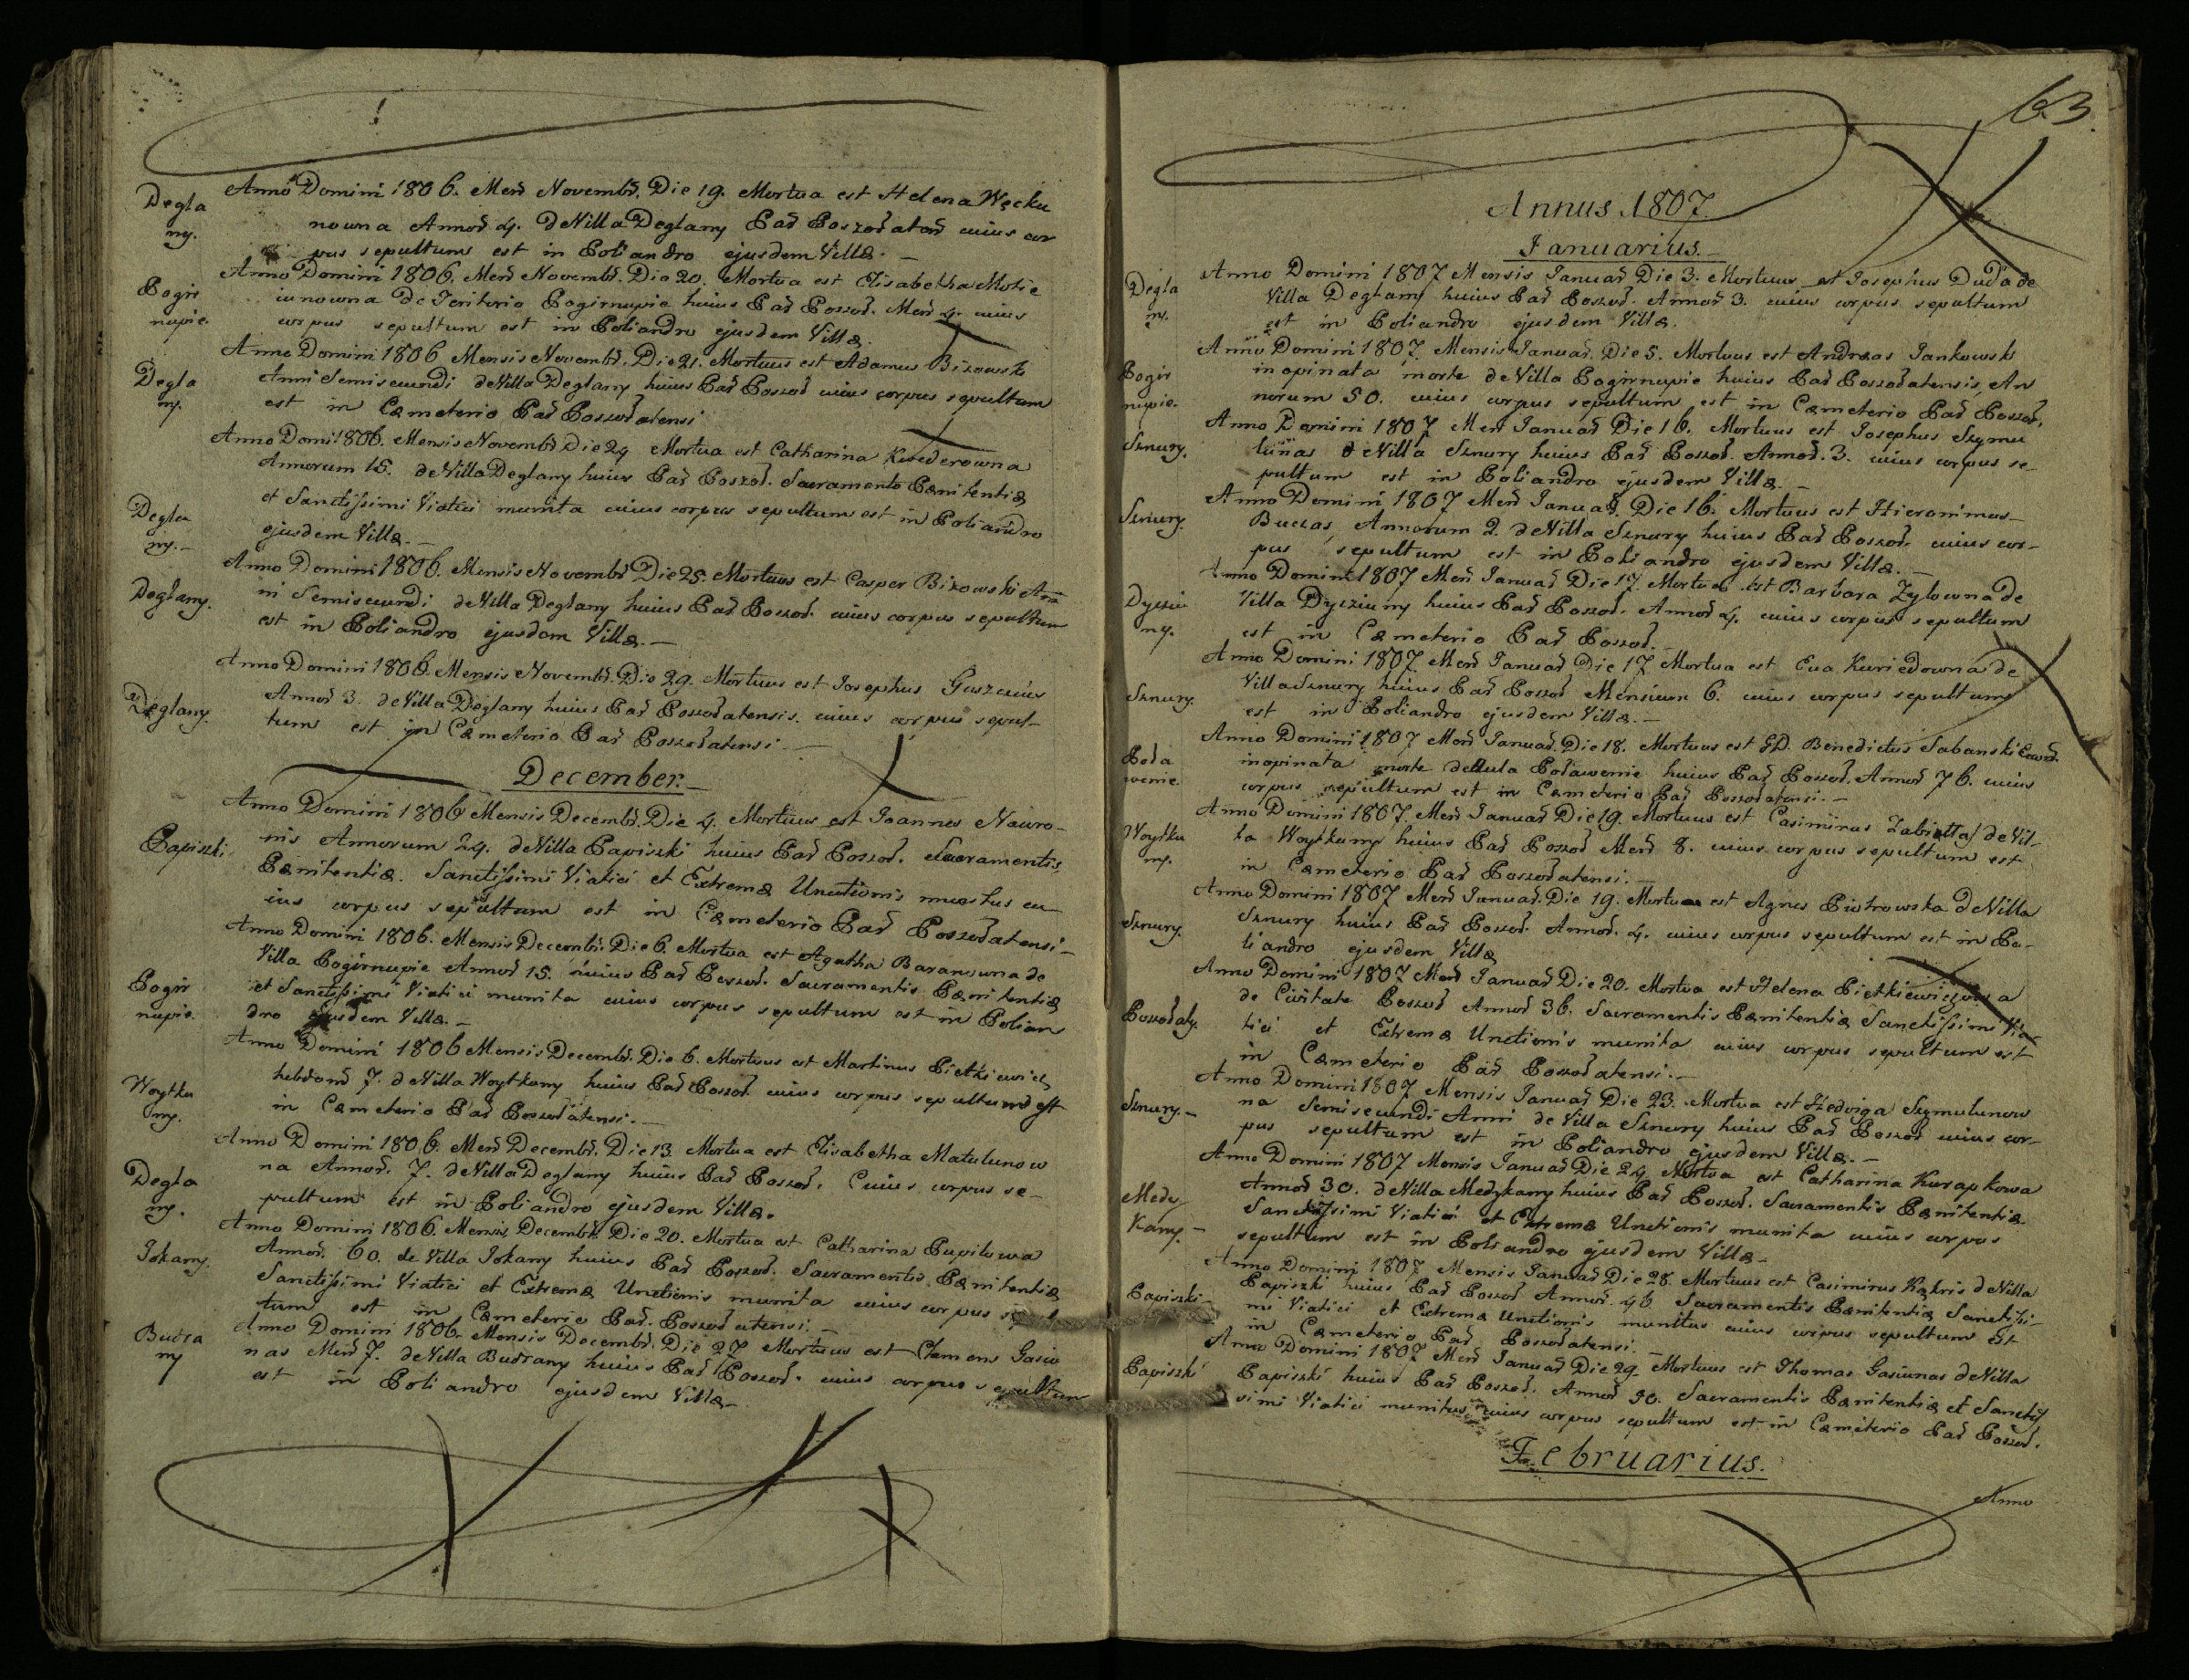 Degla
ny.
Anno Domini 1806. Mens̄ Novemb̄. Die 19. Mortua est Helena Węcku
nowna Annor̄ 4. de Villa Deglany Par̄ Poszołaten̄ cuius cor
pus sepultum est in Poliandro ejusdem Villæ. –
Pogir
nupie.
Anno Domini 1806. Mens̄ Novemb̄. Die 20. Mortua est Elisabetha Motie
iunowna de Teriterio Pogirnupie huius Par̄ Poszoł. Mens̄ 4. cuius
corpus sepultum est in Poliandro ejusdem Villæ.
Degla
ny.
Anno Domini 1806 Mensis Novemb̄. Die 21. Mortuus est Adamus Bizowski
Anni Semisecundi de Villa Deglany huius Par̄ Poszoł cuius corpus sepultum
est in Cæmeterio Par̄ Poszołatensi
Degla
ny. –
Anno Domi 1806. Mensis Novemb̄ Die 24 Mortua est Catharina Kwederowna
Annorum 15. de Villa Deglany huius Par̄ Poszoł. Sacramento Pænitentiæ
et Sanctissimi Viatici munita cuius corpus sepultum est in Poliandro
ejusdem Villæ. –
Deglany.
Anno Domini 1806. Mensis Novemb̄ Die 25. Mortuus est Casper Bizowski An̄
ni Semisecundi de Villa Deglany huius Par̄ Poszoł. cuius corpus sepultum
est in Poliandro ejusdem Villæ. –
Deglany.
Anno Domini 1806. Mensis Novemb̄. Die 29. Mortuus est Josephus
Annor̄ 3. de Villa Deglany huius Par̄ Poszołatensis. cuius corpus sepul-
tum est in Cæmeterio Par̄ Poszołatensi –
December. –
Papiszki
Anno Domini 1806 Mensis Decemb̄. Die 4. Mortuus est Joannes Nawro-
nis Annorum 24. de Villa Papiszki huius Par̄ Poszoł. Sacramentis
Pænitentiæ. Sanctissimi Viatici et Extremæ Unctionis munitus cu
ius corpus sepultum est in Cæmeterio Par̄ Poszołatensi –
Pogir
nupie.
Anno Domini 1806. Mensis Decemb̄. Die 6. Mortua est Agatha Baranowna de
Villa Pogirnupie Annor̄ 15. huius Par̄ Poszoł. Sacramentis Pænitentiæ
et Sanctissimi Viatici munita cuius corpus sepultum est in Polian
dro ejusdem Villæ. –
Woytka
ny.
Anno Domini 1806 Mensis Decemb̄. Die 6. Mortuus est Martinus Pietkiewicz
hebdom̄ 7. de Villa Woytkany huius Par̄ Poszoł. cuius corpus sepultum est
in Cæmeterio Par̄ Poszołatensi. –
Degla
ny.
Anno Domini 1806. Mens̄ Decemb̄. Die 13 Mortua est Elisabetha Matulunow
na Annor̄. 7. de Villa Deglany huius Par̄ Poszoł. Cuius corpus se-
pultum est in Poliandro ejusdem Villæ.
Jokany.
Anno Domini 1806. Mensis Decemb̄. Die 20. Mortua est Catharina Pupilowa
Annor̄. 60. de Villa Jokany huius Par̄ Poszoł. Sacramentis Pænitentiæ
Sanctissimi Viatici et Extremæ Unctionis munita cuius corpus sepul
tum est in Cæmeterio Par̄. Poszołatensi. –
Budra
ny
Anno Domini 1806. Mensis Decemb̄. Die 27 Mortuus est Clemens Gasiu
nas Mens̄ 7. de Villa Budrany huius Par̄ Poszoł. cuius corpus sepultum
est in Poliandro ejusdem Villæ –
63.
Annus 1807.
Januarius. –
Degla
ny.
Anno Domini 1807 Mensis Januar̄ Die 3. Mortuus est Josephus Duda de
Villa Deglany huius Par̄ Poszoł. Annor̄ 3. cuius corpus sepultum
est in Poliandro ejusdem Villæ.
Pogir
nupie.
Anno Domini 1807. Mensis Januar̄. Die 5. Mortuus est Andreas Jankowski
inopinata morte de Villa Pogirnupie huius Par̄ Poszołatensis, An
norum 50. cuius corpus sepultum est in Cæmeterio Par̄ Poszoł.
Sznury.
Anno Domini 1807 Mens̄ Januar̄ Die 16. Mortuus est Josephus Szymu
lunas de Villa Sznury huius Par̄ Poszoł. Annor̄. 3. cuius corpus se-
pultum est in Poliandro ejusdem Villæ. –
Sznury.
Anno Domini 1807 Mens̄ Januar̄. Die 16. Mortuus est Hieronimus
Buczas, Annorum 2. de Villa Sznury huius Par̄ Poszoł. cuius cor-
pus sepultum est in Poliandro ejusdem Villæ. –
Dyrziu
ny.
Anno Domini 1807 Mens̄ Januar̄ Die 17. Mortua est Barbara Zylowna de
Villa Dyrziuny huius Par̄ Poszoł. Annor̄ 4. cuius corpus sepultum
est in Cæmeterio Par̄ Poszoł. –
Sznury.
Anno Domini 1807. Mens̄ Januar̄ Die 17 Mortua est Eva Kuriedowna de
Villa Sznury huius Par̄ Poszoł Mensium 6. cuius corpus sepultum
est in Poliandro ejusdem Villæ. –
Poła
wenie.
Anno Domini 1807 Mens̄ Januar̄. Die 18. Mortuus est GD. Benedictus Sabanski
inopinata morte de Aula Poławenie huius Par̄ Poszoł. Annor̄ 76. cuius
corpus sepultum est in Cæmeterio Par̄ Poszołatensi. –
Woytka
ny.
Anno Domini 1807. Mens̄ Januar̄ Die 19. Mortuus est Casimirus Zabiełła de Vil-
la Woytkany huius Par̄ Poszoł Mens̄ 8. cuius corpus sepultum est
in Cæmeterio Par̄ Poszołatensi. –
Sznury.
Anno Domini 1807 Mens̄ Januar̄. Die 19. Mortua est Agnes Piotrowska de Villa
Sznury huius Par̄ Poszoł. Annor̄. 4. cuius corpus sepultum est in Po-
liandro ejusdem Villæ
Poszołaty.
Anno Domini 1807 Mens̄ Januar̄ Die 20. Mortua est Helena Pietkiewiczowa
de Civitate Poszoł Annor̄ 36. Sacramentis Pænitentiæ Sanctissimi Via
tici et Extremæ Unctionis munita cuius corpus sepultum est
in Cæmeterio Par̄ Poszołatensi. –
Sznury. –
Anno Domini 1807 Mensis Januar̄ Die 23. Mortua est Hedviga Szymulunow
na Semisecundi Anni de Villa Sznury huius Par̄ Poszoł cuius cor-
pus sepultum est in Poliandro ejusdem Villæ. –
Medy
kany. –
Anno Domini 1807 Mensis Januar̄ Die 24 Mortua est Catharina Kurapkowa
Annor̄ 30. de Villa Medykany huius Par̄ Poszoł. Sacramentis Pænitentiæ
Sanctissimi Viatici et Extremæ Unctionis munita cuius corpus
sepultum est in Poliandro ejusdem Villæ –
Papiszki –
Anno Domini 1807 Mensis Januar̄ Die 28. Mortuus est Casimirus Kakris de Villa
Papiszki huius Par̄ Poszoł Annor̄. 46. Sacramentis Pænitentiæ Sanctissi-
mi Viatici et Extremæ Unctionis munitus cuius corpus sepultum est
in Cæmeterio Par̄ Poszołatensi. –
Papiszki
Anno Domini 1807 Mens̄ Januar̄ Die 29 Mortuus est Thomas Gasiunas de Villa
Papiszki huius Par̄ Poszoł. Annor̄ 50. Sacramentis Pænitentiæ et Sanctis
simi Viatici munitus cuius corpus sepultum est in Cæmeterio Par̄ Poszoł.
Februarius.
Anno